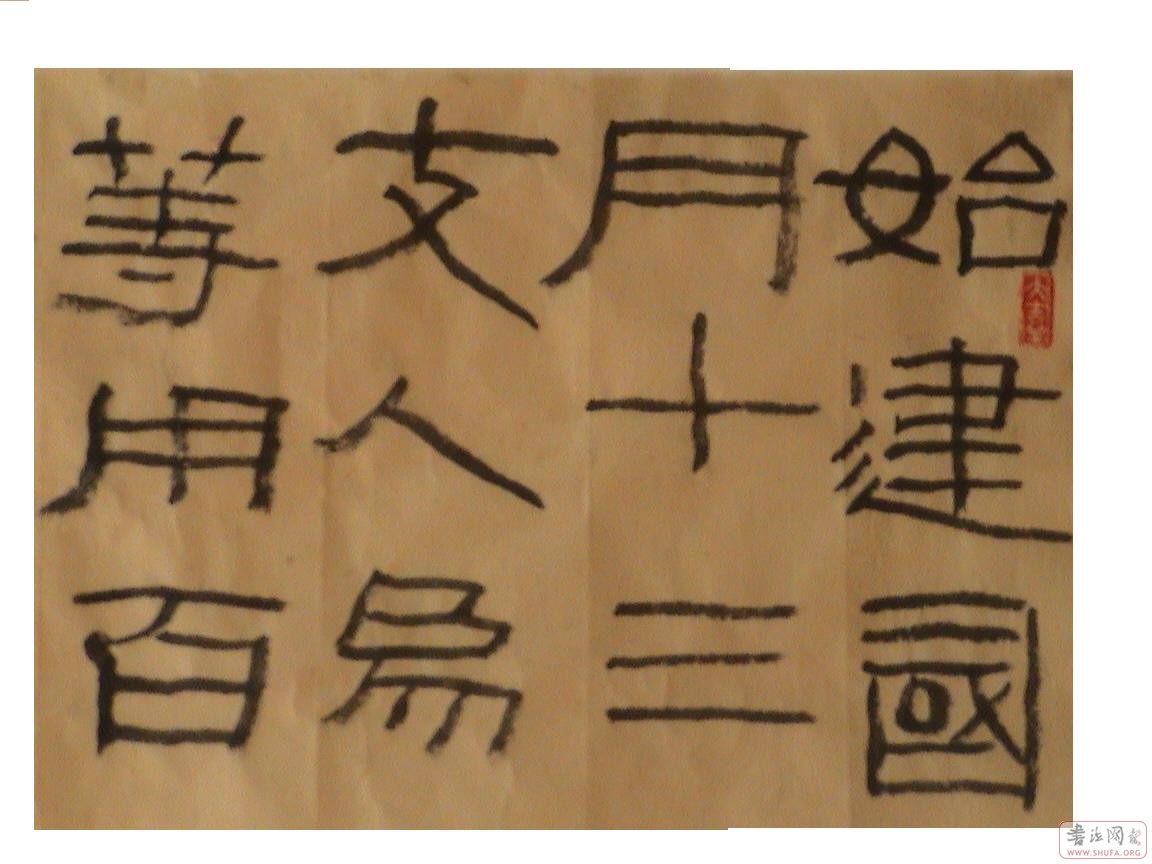 始建國
月十三
支人為
等用百
书法网
WWW.SHUFA.ORG